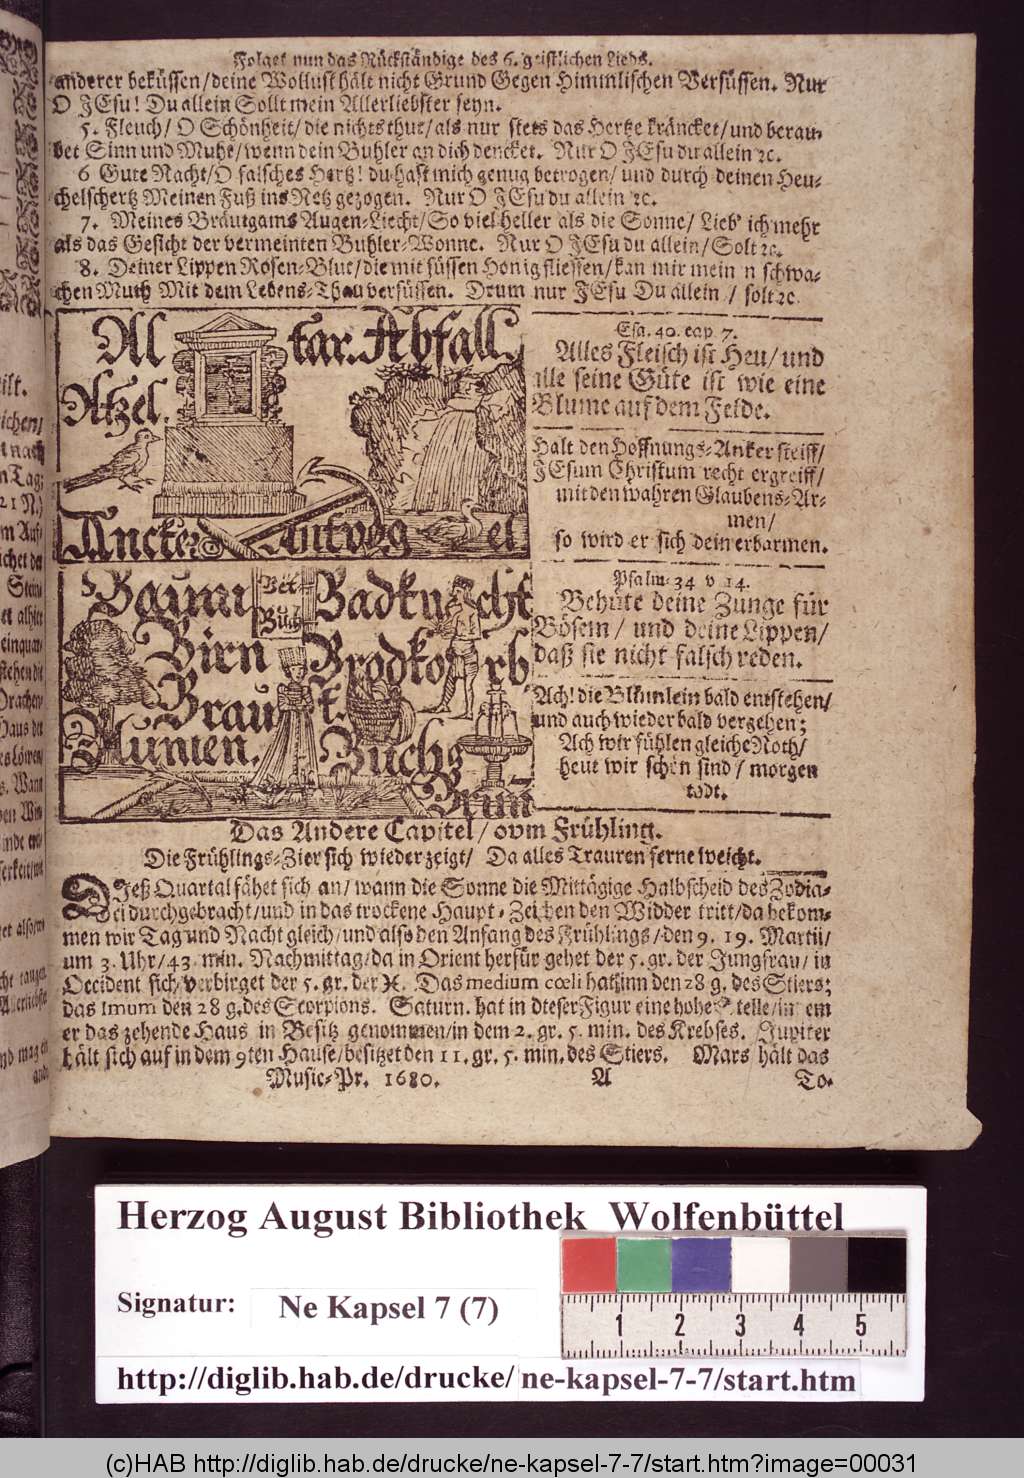 Folget nun das Rückständige des 6. geistlichen Lieds.
anderer beküssen/ deine Wollust hält nicht Grund Gegen Himmlischen Versüssen. Nur
O JEsu! Du allein Sollt mein Allerliebster seyn.
5. Fleuch/ O Schönheit/ die nichts thut/ als nur stets das Hertze kräncket/ und berau-
bet Sinn und Muht/ wenn dein Buhler an dich dencket. Nur O JEsu du allein ꝛc.
6 Gute Nacht/ O falsches Hertz! du hast mich genug betrogen/ und durch deinen Heu-
chelschertz Meinen Fuß ins Netz gezogen. Nur O JEsu du allein ꝛc.
7. Meines Bräutgams Augen-Liecht/ So viel heller als die Sonne/ Lieb' ich mehr
als das Gesicht der vermeinten Buhler-Wonne. Nur O JEsu du allein/ Solt ꝛc.
8. Deiner Lippen Rosen-Blut/ die mit süssen Honig fliessen/ kan mir mein n schwa-
chen Muth Mit dem Lebens-Thau versüssen. Drum nur JEsu Du allein / solt ꝛc
Al tar. Abfall.
Atzel.
Ancker Antvog el
Esa. 40. cap. 7.
Alles Fleisch ist Heu/ und
alle seine Güte ist wie eine
Blume auf dem Felde.
Halt den Hoffnungs-Anker steiff/
JEsum Christum recht ergreiff/
mit den wahren Glaubens-Ar-
men/
so wird er sich dein erbarmen.
Baum Bet Buch Badknecht
Birn Brodkorb
Braut.
Blumen. Buchs
Brunn
Psalm. 34 v 14.
Behüte deine Zunge für
Bösem/ und deine Lippen/
daß sie nicht falsch reden.
Ach! die Blümlein bald entstehen/
und auch wieder bald vergehen;
Ach wir fühlen gleiche Noth/
heut wir schön sind/ morgen
todt.
Das Andere Capitel/ vom Frühling.
Die Frühlings-Zier sich wieder zeigt/ Da alles Trauren ferne weicht.
DIeß Quartal fähet sich an/ wann die Sonne die Mittägige Halbscheid des Zodia-
ci durchgebracht/ und in das trockene Haupt-Zeichen den Widder tritt/ da bekom-
men wir Tag und Nacht gleich/ und also den Anfang des Frühlings/ den 9. 19. Martii/
um 3. Uhr/ 43. min. Nachmittag/ da in Orient herfür gehet der 5. gr. der Jungfrau/ in
Occident sich verbirget der 5. gr. der ♓. Das medium cœli hat inn den 28 g. des Stiers;
das Imum den 28 g. des Scorpions. Saturn. hat in dieser Figur eine hohe Stelle/ in em
er das zehende Haus in Besitz genommen/ in dem 2. gr. 5. min. des Krebses. Jupiter
hält sich auf in dem 9ten Hause/ besitzet den 11. gr. 5. min. des Stiers. Mars hält das
Music-Pr. 1680. A To-
Herzog August Bibliothek Wolfenbüttel
Signatur: Ne Kapsel 7 (7)
1 2 3 4 5
http://diglib.hab.de/drucke/ne-kapsel-7-7/start.htm
(c)HAB http://diglib.hab.de/drucke/ne-kapsel-7-7/start.htm?image=00031